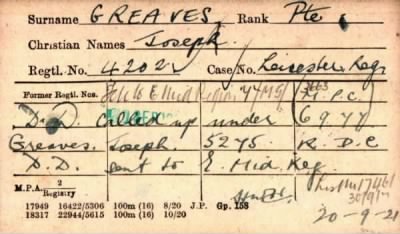 Surname GREAVES, Rank Pte
Christian Names Joseph.
Regtl. No. 4202 Case No. Leicester Reg
Former Regtl. Nos. E Mid Region
D.D. called up under 6977
Greaves. Joseph. 5275 R.D.C
D.D. sent to E. Mid. Reg
M.P.A. 2 Registry
17949 16422/5306 100m (16) 8/20 J.P. Gp. 158
18317 22944/5615 100m (16) 10/20
20-9-21